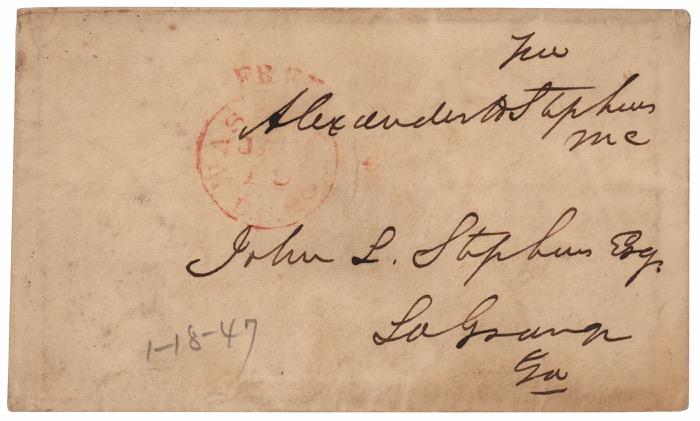 Free
Alexander H Stephens
MC
FREE
John L. Stephens Esq.
La Grange
Ga
1-18-47